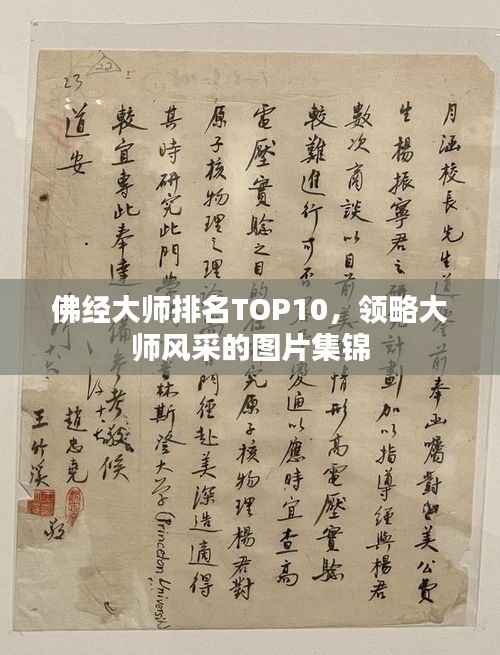 佛经大师排名TOP10，领略大
师风采的图片集锦
月涵校長先生道鑒前奉函囑對留美公費
生楊振寧君之研究計劃加以指導經與楊君
數次商談以目前美情形高電壓實驗
較難進行可否變通以應時宜查高
電壓實驗之目的在研究原子核物理楊君對
原子核物理之門徑赴美深造適得
其時研究此門學普林斯登大學(Princeton University)
較宜專此奉達備參考敬候
道安
趙忠堯
王竹溪
敬
23
22